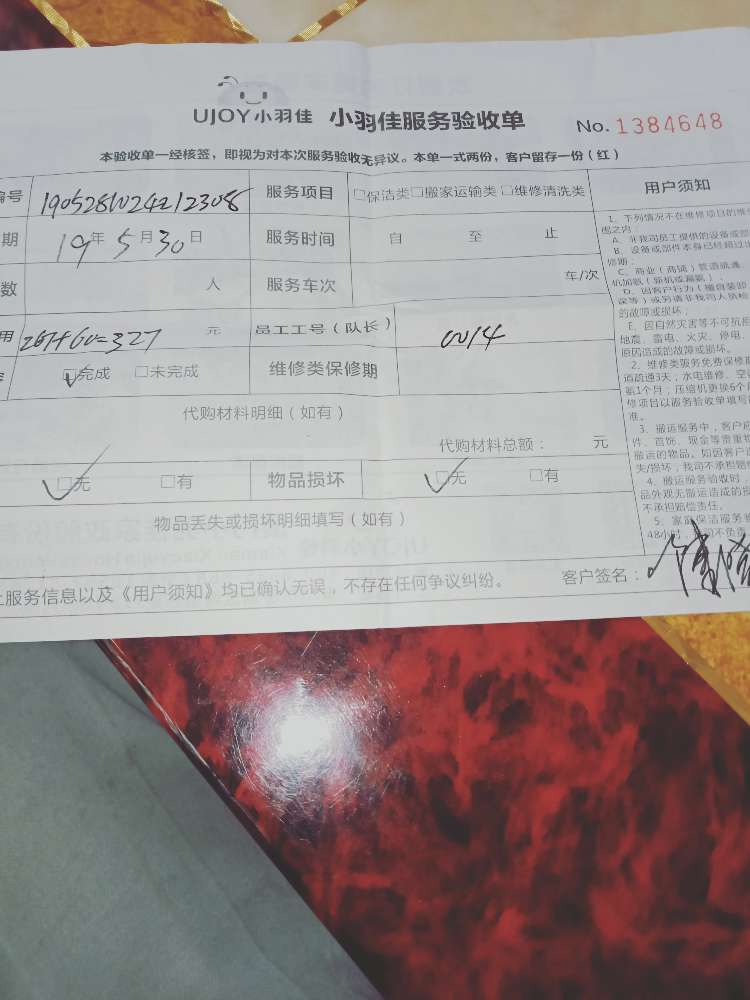 UJOY小羽佳 小羽佳服务验收单 No. 1384648
本验收单一经核签，即视为对本次服务验收无异议。本单一式两份，客户留存一份（红）
编号 服务项目 □保洁类□搬家运输类□维修清洗类 用户须知
期 19年5月30日 服务时间 自 至 止
数 人 服务车次 车/次
用 267+60=327 元 员工工号（队长） 0014
完成 □未完成 维修类保修期
代购材料明细（如有）
代购材料总额： 元
□无 □有 物品损坏 □无 □有
物品丢失或损坏明细填写（如有）
上服务信息以及《用户须知》均已确认无误，不存在任何争议纠纷。 客户签名：
1、下列情况不在维修项目的维
A、非我司员工提供的设备或部
B、设备或部件本身已经超过
修期；
C、商业（商铺）管道疏通
D、因客户行为（擅自装卸
的故障或损坏；
E、因自然灾害等不可抗
地震、雷电、火灾、停电、
原因造成的故障或损坏。
2、维修类服务免费保修期
道疏通3天；水电维修、空
氨1个月；压缩机更换6个月
修项目以服务验收单填写
准。
3、搬运服务中，客户
件、首饰、现金等贵重物
搬运的物品。如因客户
失/损坏，我司不承担赔
4、搬运服务验收时，
品外观无搬运造成的损
不承担赔偿责任。
5、家庭保洁服务